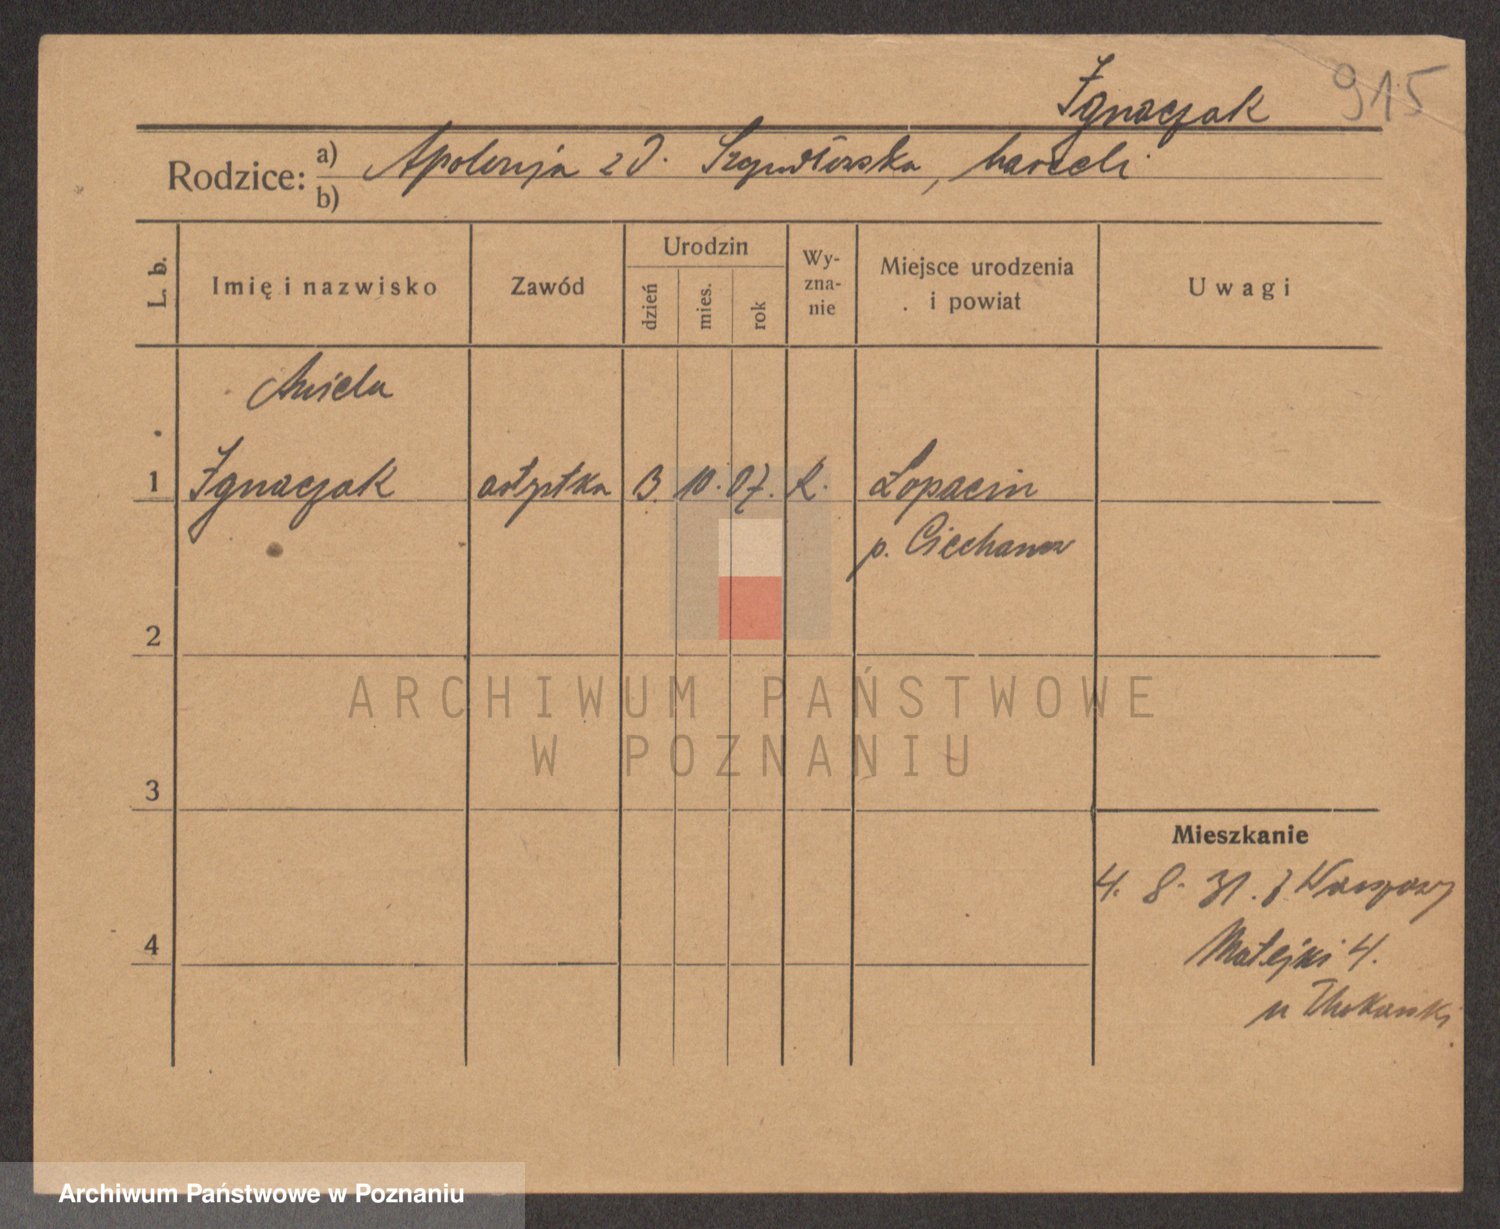 Ignaczak 915
Rodzice: a) Apolonja z d. Szydłowska, Marceli
b)
L. b. Imię i nazwisko Zawód Urodzin dzień mies. rok Wy-zna-nie Miejsce urodzenia i powiat Uwagi
Aniela
1 Ignaczak artystka 3. 10. 07. R. Łopacin
p. Ciechanów
2
3
4
Mieszkanie
4. 8. 31. z Warszawy
Matejki 4.
u
ARCHIWUM PAŃSTWOWE
W POZNANIU
Archiwum Państwowe w Poznaniu